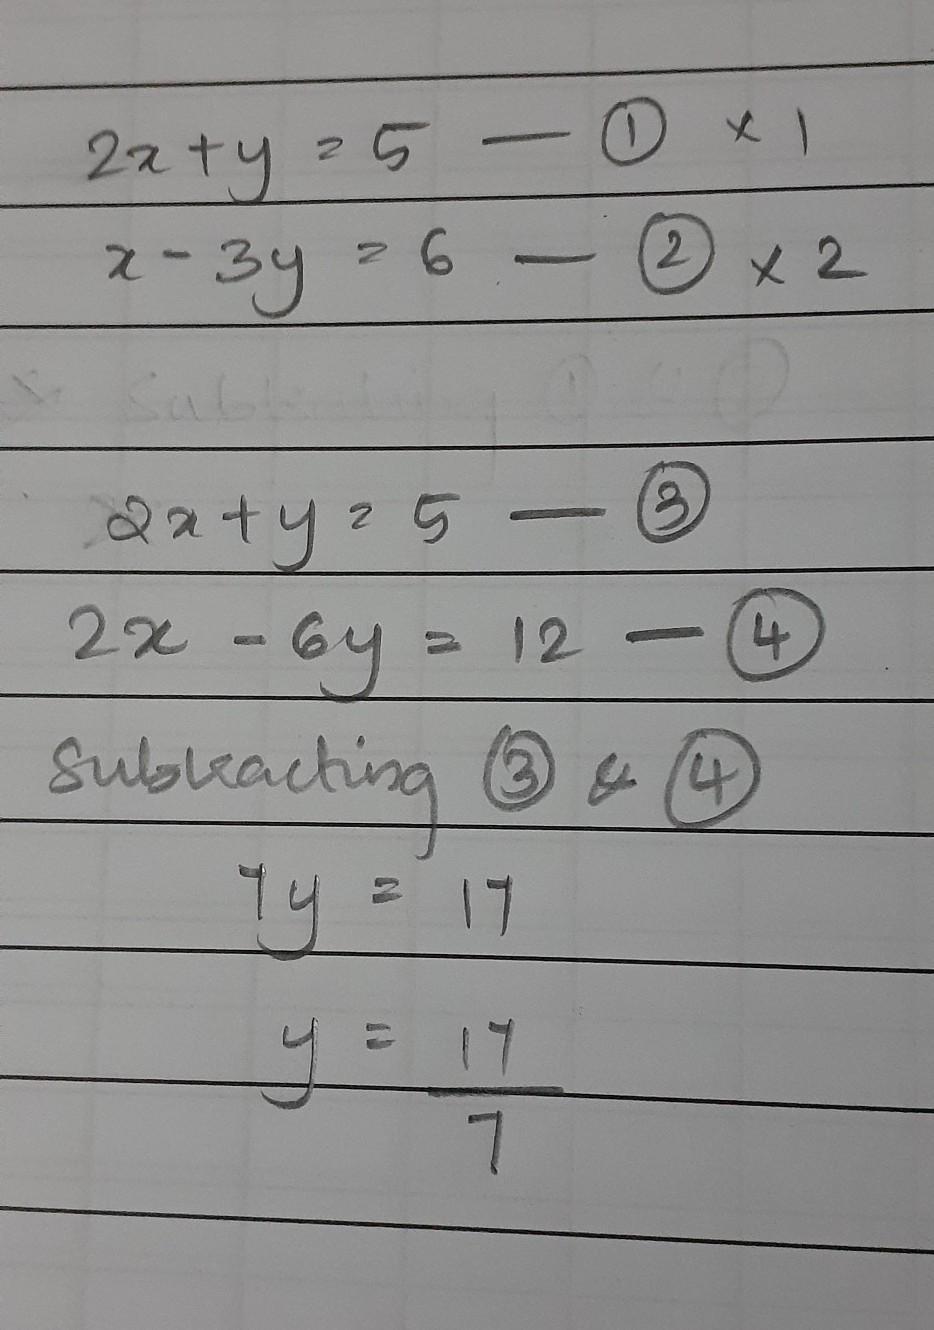 2x + y = 5 — ① × 1
x - 3y = 6 — ② × 2
2x + y = 5 — ③
2x - 6y = 12 — ④
Subtracting ③ & ④
7y = 17
y = 17
7